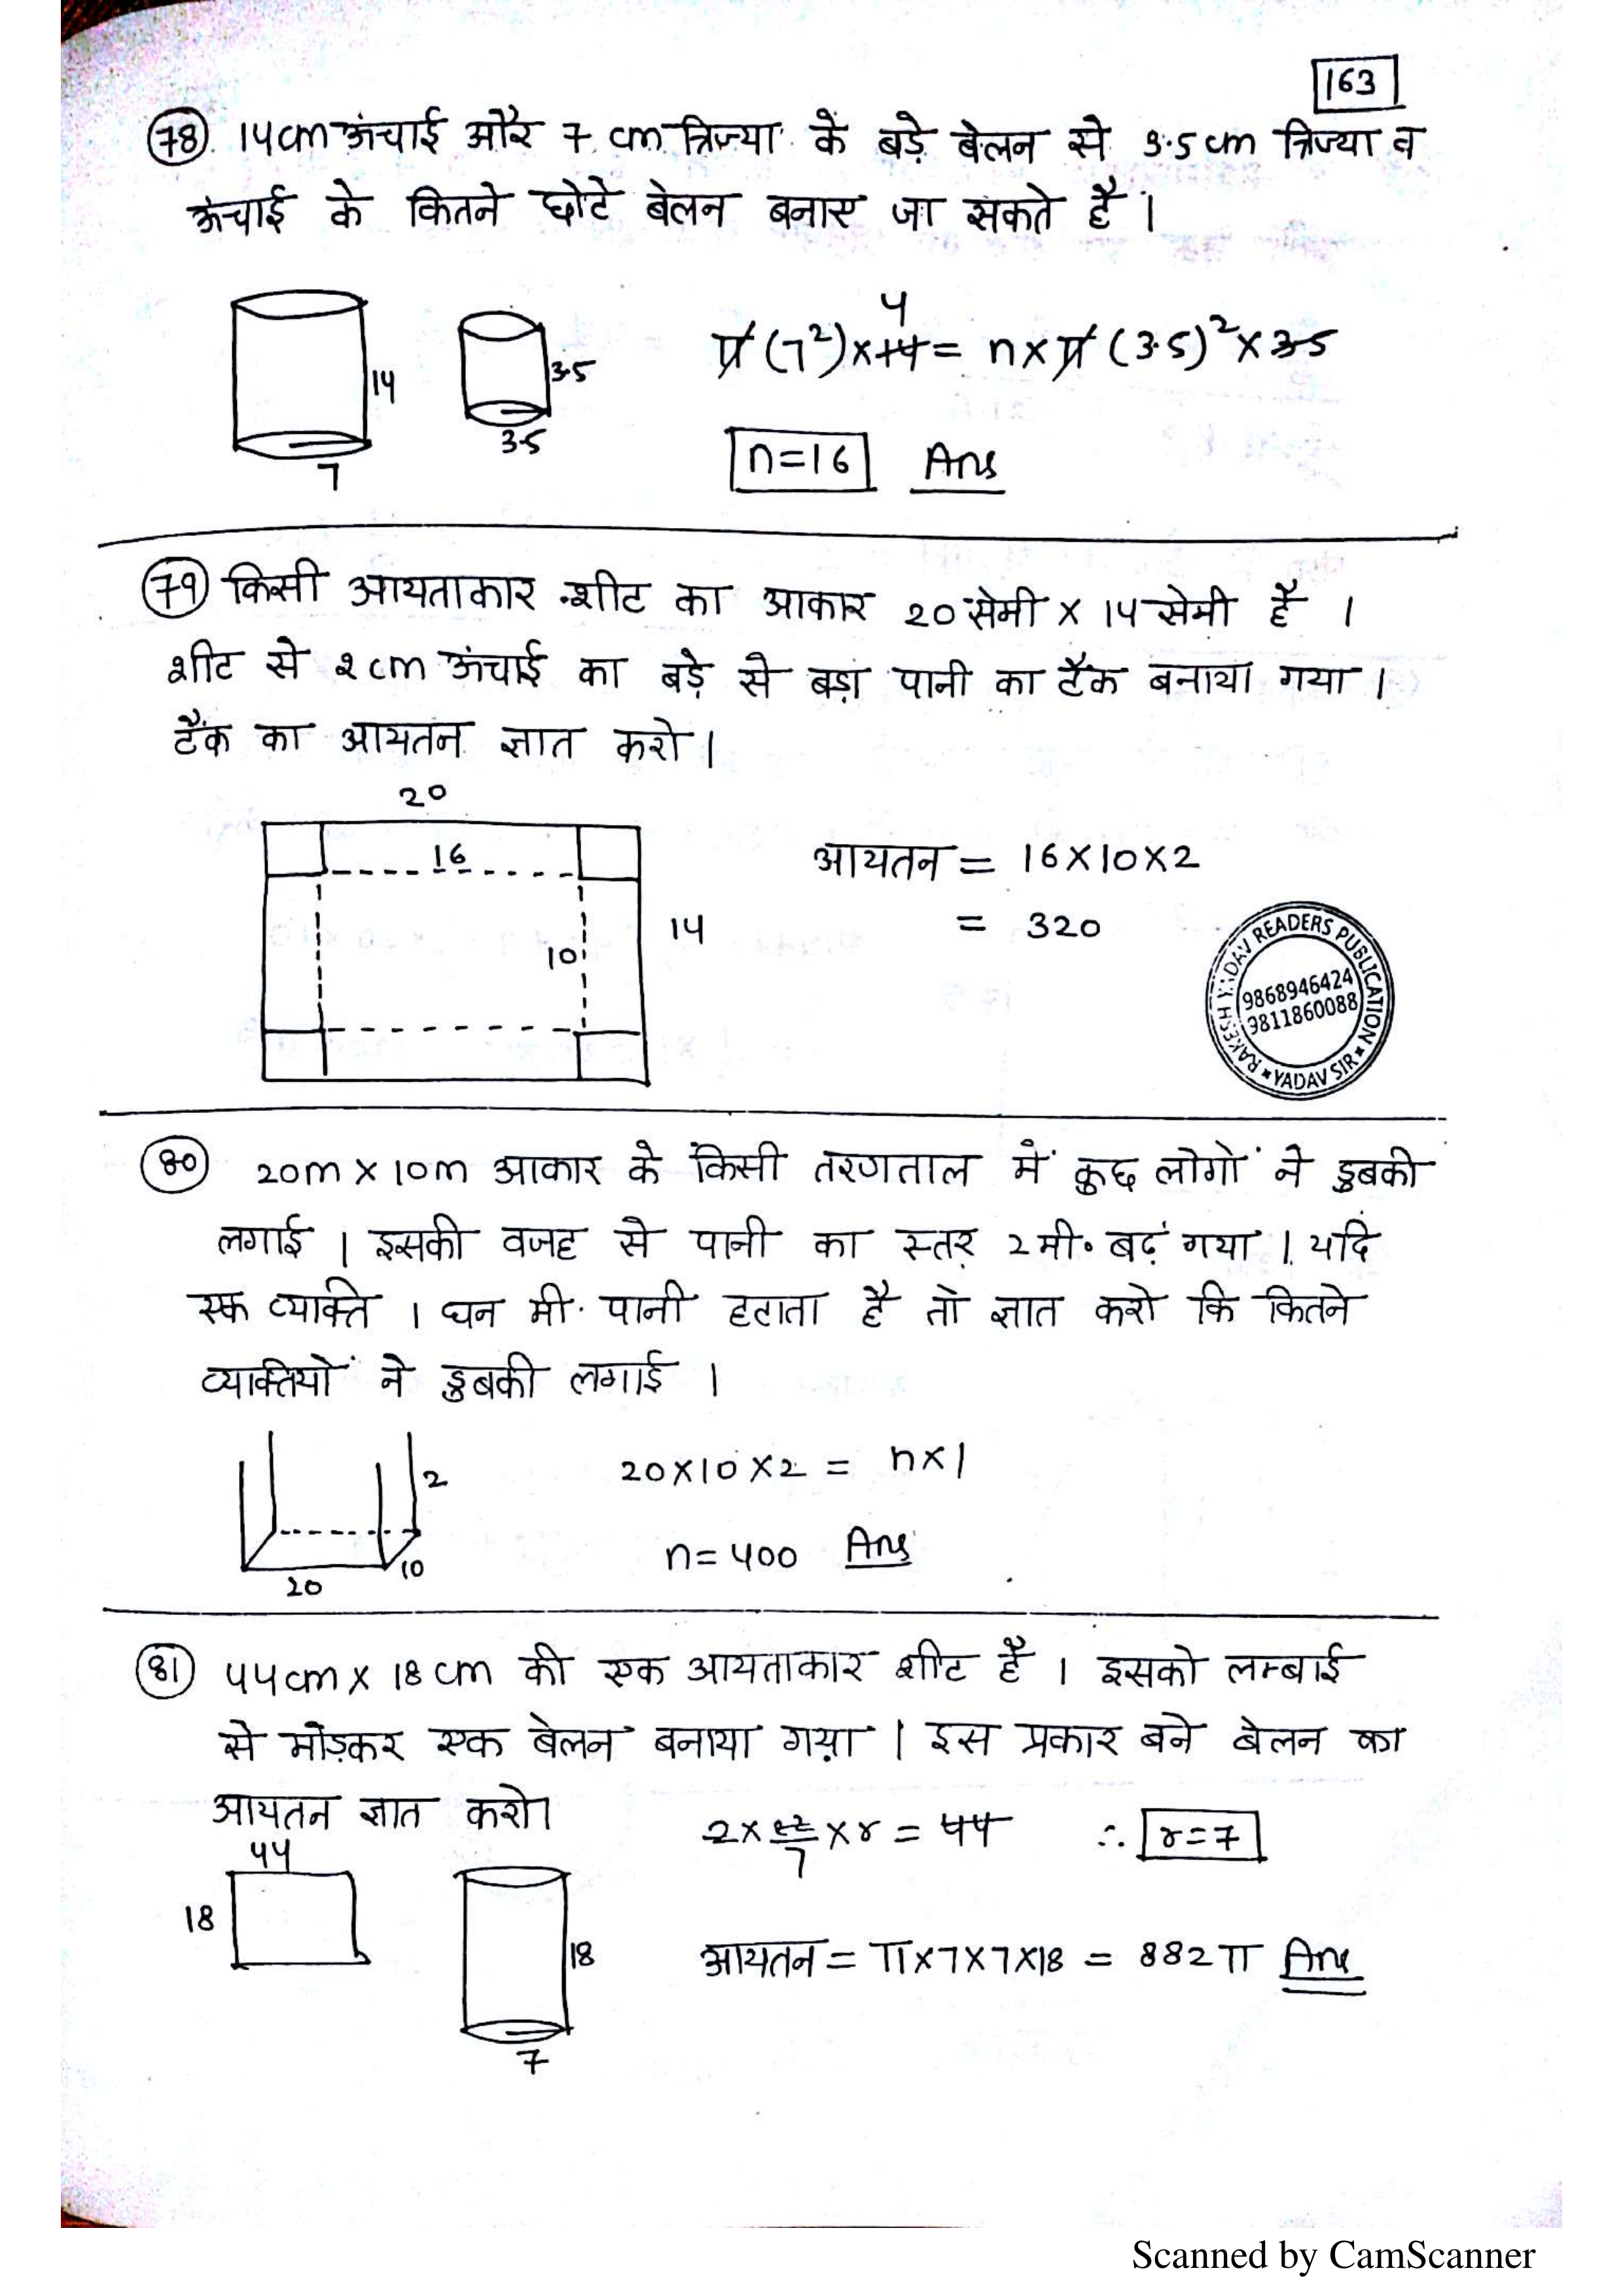 163
78. 14cm ऊंचाई और 7 cm त्रिज्या के बड़े बेलन से 3.5 cm त्रिज्या व
ऊंचाई के कितने छोटे बेलन बनाए जा सकते है ।
π(7²)×14 = n×π(3.5)²×3.5
4
14
3.5
7
3.5
n=16 Ans
79 किसी आयताकार शीट का आकार 20 सेमी × 14 सेमी है ।
शीट से 2 cm ऊंचाई का बड़े से बड़ा पानी का टैंक बनाया गया ।
टैंक का आयतन ज्ञात करो ।
20
16
10
14
आयतन = 16×10×2
= 320
RAKESH YADAV READERS PUBLICATION
9868946424
9811860088
* YADAV SIR *
80 20m × 10m आकार के किसी तरणताल में कुछ लोगों ने डुबकी
लगाई । इसकी वजह से पानी का स्तर 2 मी. बढ़ गया । यदि
एक व्यक्ति 1 घन मी. पानी हटाता है तो ज्ञात करो कि कितने
व्यक्तियों ने डुबकी लगाई ।
2
10
20
20×10×2 = n×1
n=400 Ans
81 44cm × 18 cm की एक आयताकार शीट है । इसको लम्बाई
से मोड़कर एक बेलन बनाया गया । इस प्रकार बने बेलन का
आयतन ज्ञात करो।
44
18
18
7
2×22/7×r = 44 ∴ r=7
आयतन = π×7×7×18 = 882π Ans
Scanned by CamScanner